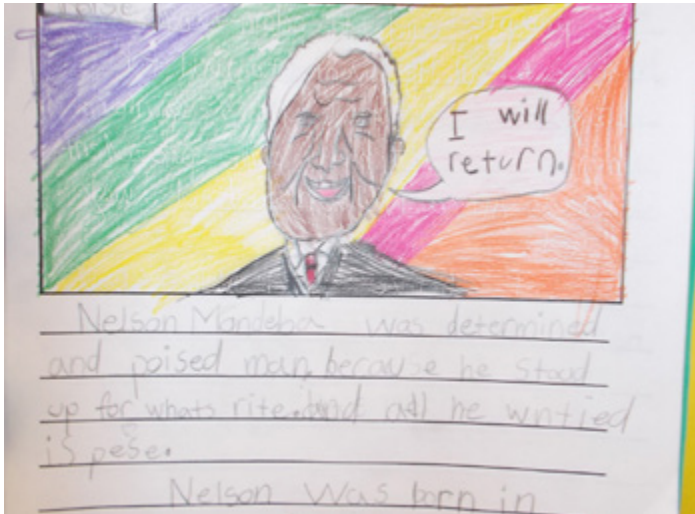 I will
return.
Nelson Mandela was determined
and poised man, because he stood
up for whats rite. and all he wntied
is pese.
Nelson was born in